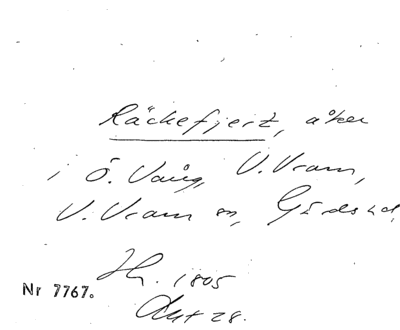 Räckefjert, åker
i Ö. Vång, V. Vram,
V. Vram sn, Gärds hd,
Hr. 1805
Akt 28.
Nr 7767.